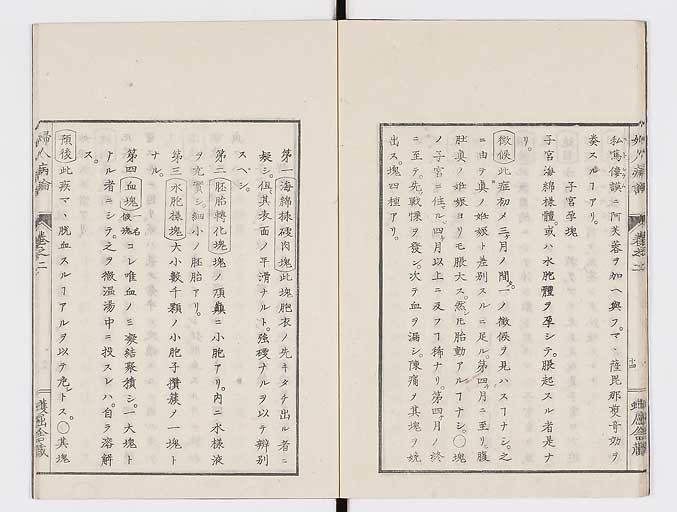 私篤僂謨ニ阿芙蓉ヲ加ヘ與フ。マヽ薩毘那奠奇効ヲ
奏スルヿアリ。
子宮孕塊
子宮海綿様體或ハ水胞體ヲ孕シテ。脹起スル者是ナ
リ。
徴候 此症初メ三月ノ間ハ。一ノ徴候ヲ見ハスヿナシ。之
ニ由テ眞ノ妊娠ト差別スルニ足ル。第四月ニ至リ。腹
肚眞ノ妊娠ヨリモ脹大ス。然𪜈胎動アルヿナシ。〇塊
ノ子宮ニ住ル。四月以上ニ及フヿ稀ナリ。第四月ノ終
ニ至テ。先戰慄ヲ發シ。次テ血ヲ漏シ。陳痛ノ其塊ヲ娩
出ス。塊四種アリ。
第一 海綿様硬肉塊 此塊胞衣ノ先キタチ出ル者ニ
擬シ。但其表面ノ平滑ナルト。強硬ナルヲ以テ辨別
スヘシ。
第二 胚胎轉化塊 塊ノ頂巓ニ小胞アリ。内ニ水様液
ヲ充實シ。細小ノ胚胎アリ。
第三 水胞様塊 大小數千顆ノ小胞子攢簇ノ一塊ト
ナル。
第四 血塊 一名假塊 コレ唯血ノミ凝結聚積シ。一大塊ト
ナル者ニシテ。之ヲ微温湯中ニ投スレハ。自ラ溶解
ス。
預後 此疾マヽ脱血スルヿアルヲ以テ危シトス。〇其塊
婦人病論
卷之二
蠖屈舎藏